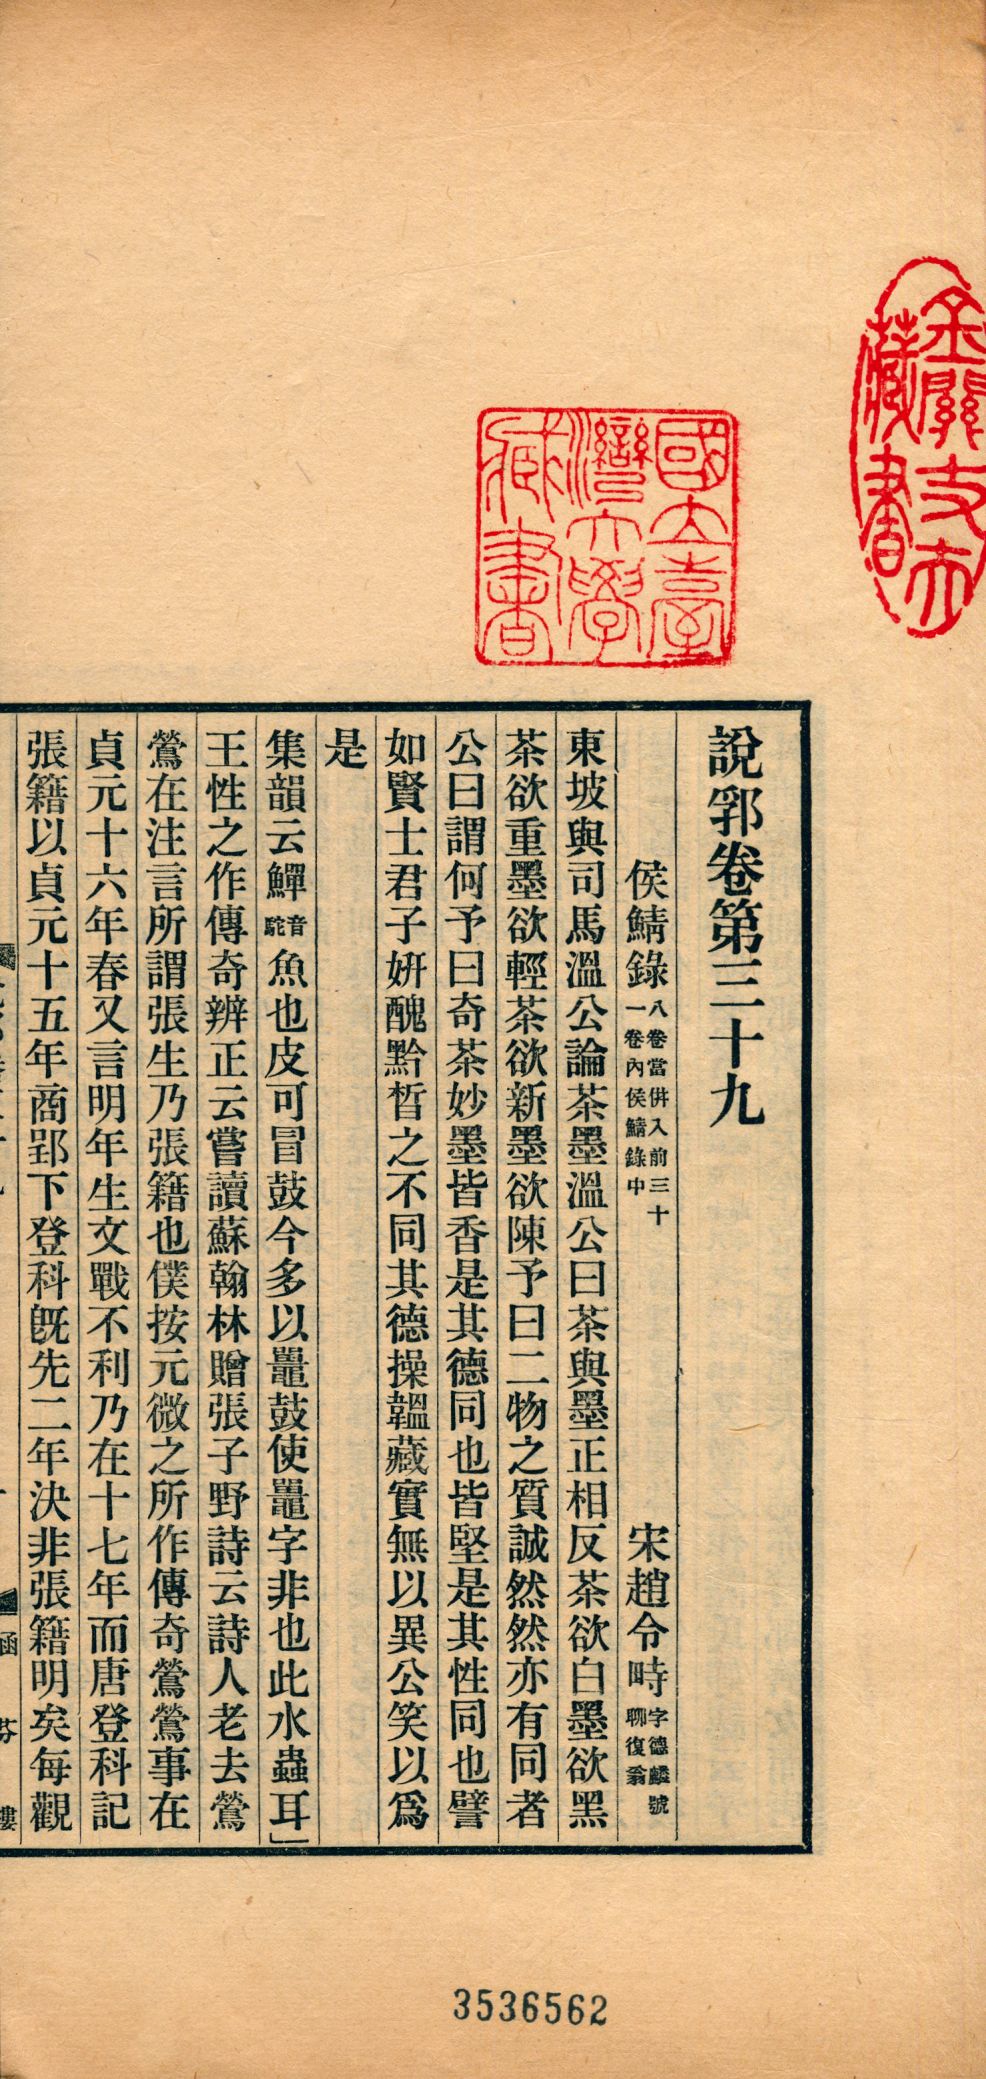 說郛卷第三十九
侯鯖錄八卷當併入前三十一卷內侯鯖錄中 宋趙令畤字德麟號聊復翁
東坡與司馬溫公論茶墨溫公曰茶與墨正相反茶欲白墨欲黑
茶欲重墨欲輕茶欲新墨欲陳予曰二物之質誠然然亦有同者
公曰謂何予曰奇茶妙墨皆香是其德同也皆堅是其性同也譬
如賢士君子妍醜黔皙之不同其德操韞藏實無以異公笑以爲
是
集韻云鱓音駝魚也皮可冒鼓今多以鼍鼓使鼍字非也此水蟲耳
王性之作傳奇辨正云嘗讀蘇翰林贈張子野詩云詩人老去鶯
鶯在注言所謂張生乃張籍也僕按元微之所作傳奇鶯鶯事在
貞元十六年春又言明年生文戰不利乃在十七年而唐登科記
張籍以貞元十五年商郢下登科旣先二年決非張籍明矣每觀
國立臺灣大學藏書
藏書
3536562